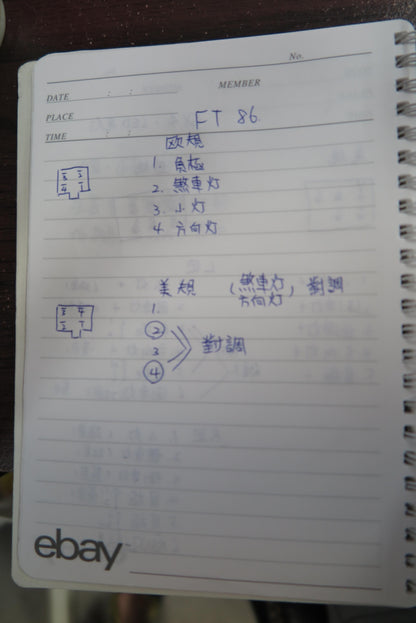 No.
DATE : : MEMBER
PLACE
TIME
FT 86
欧規
1. 負極
2. 煞車灯
3. 小灯
4. 方向灯
美規 (煞車灯, 方向灯) 對調
1.
2
3
4
對調
ebay